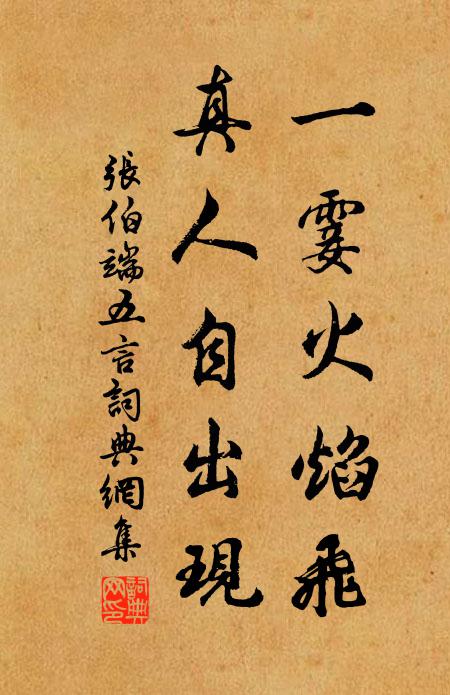 一霎火焰飛
真人自出現
張伯端五言詞典網集
詞典网印